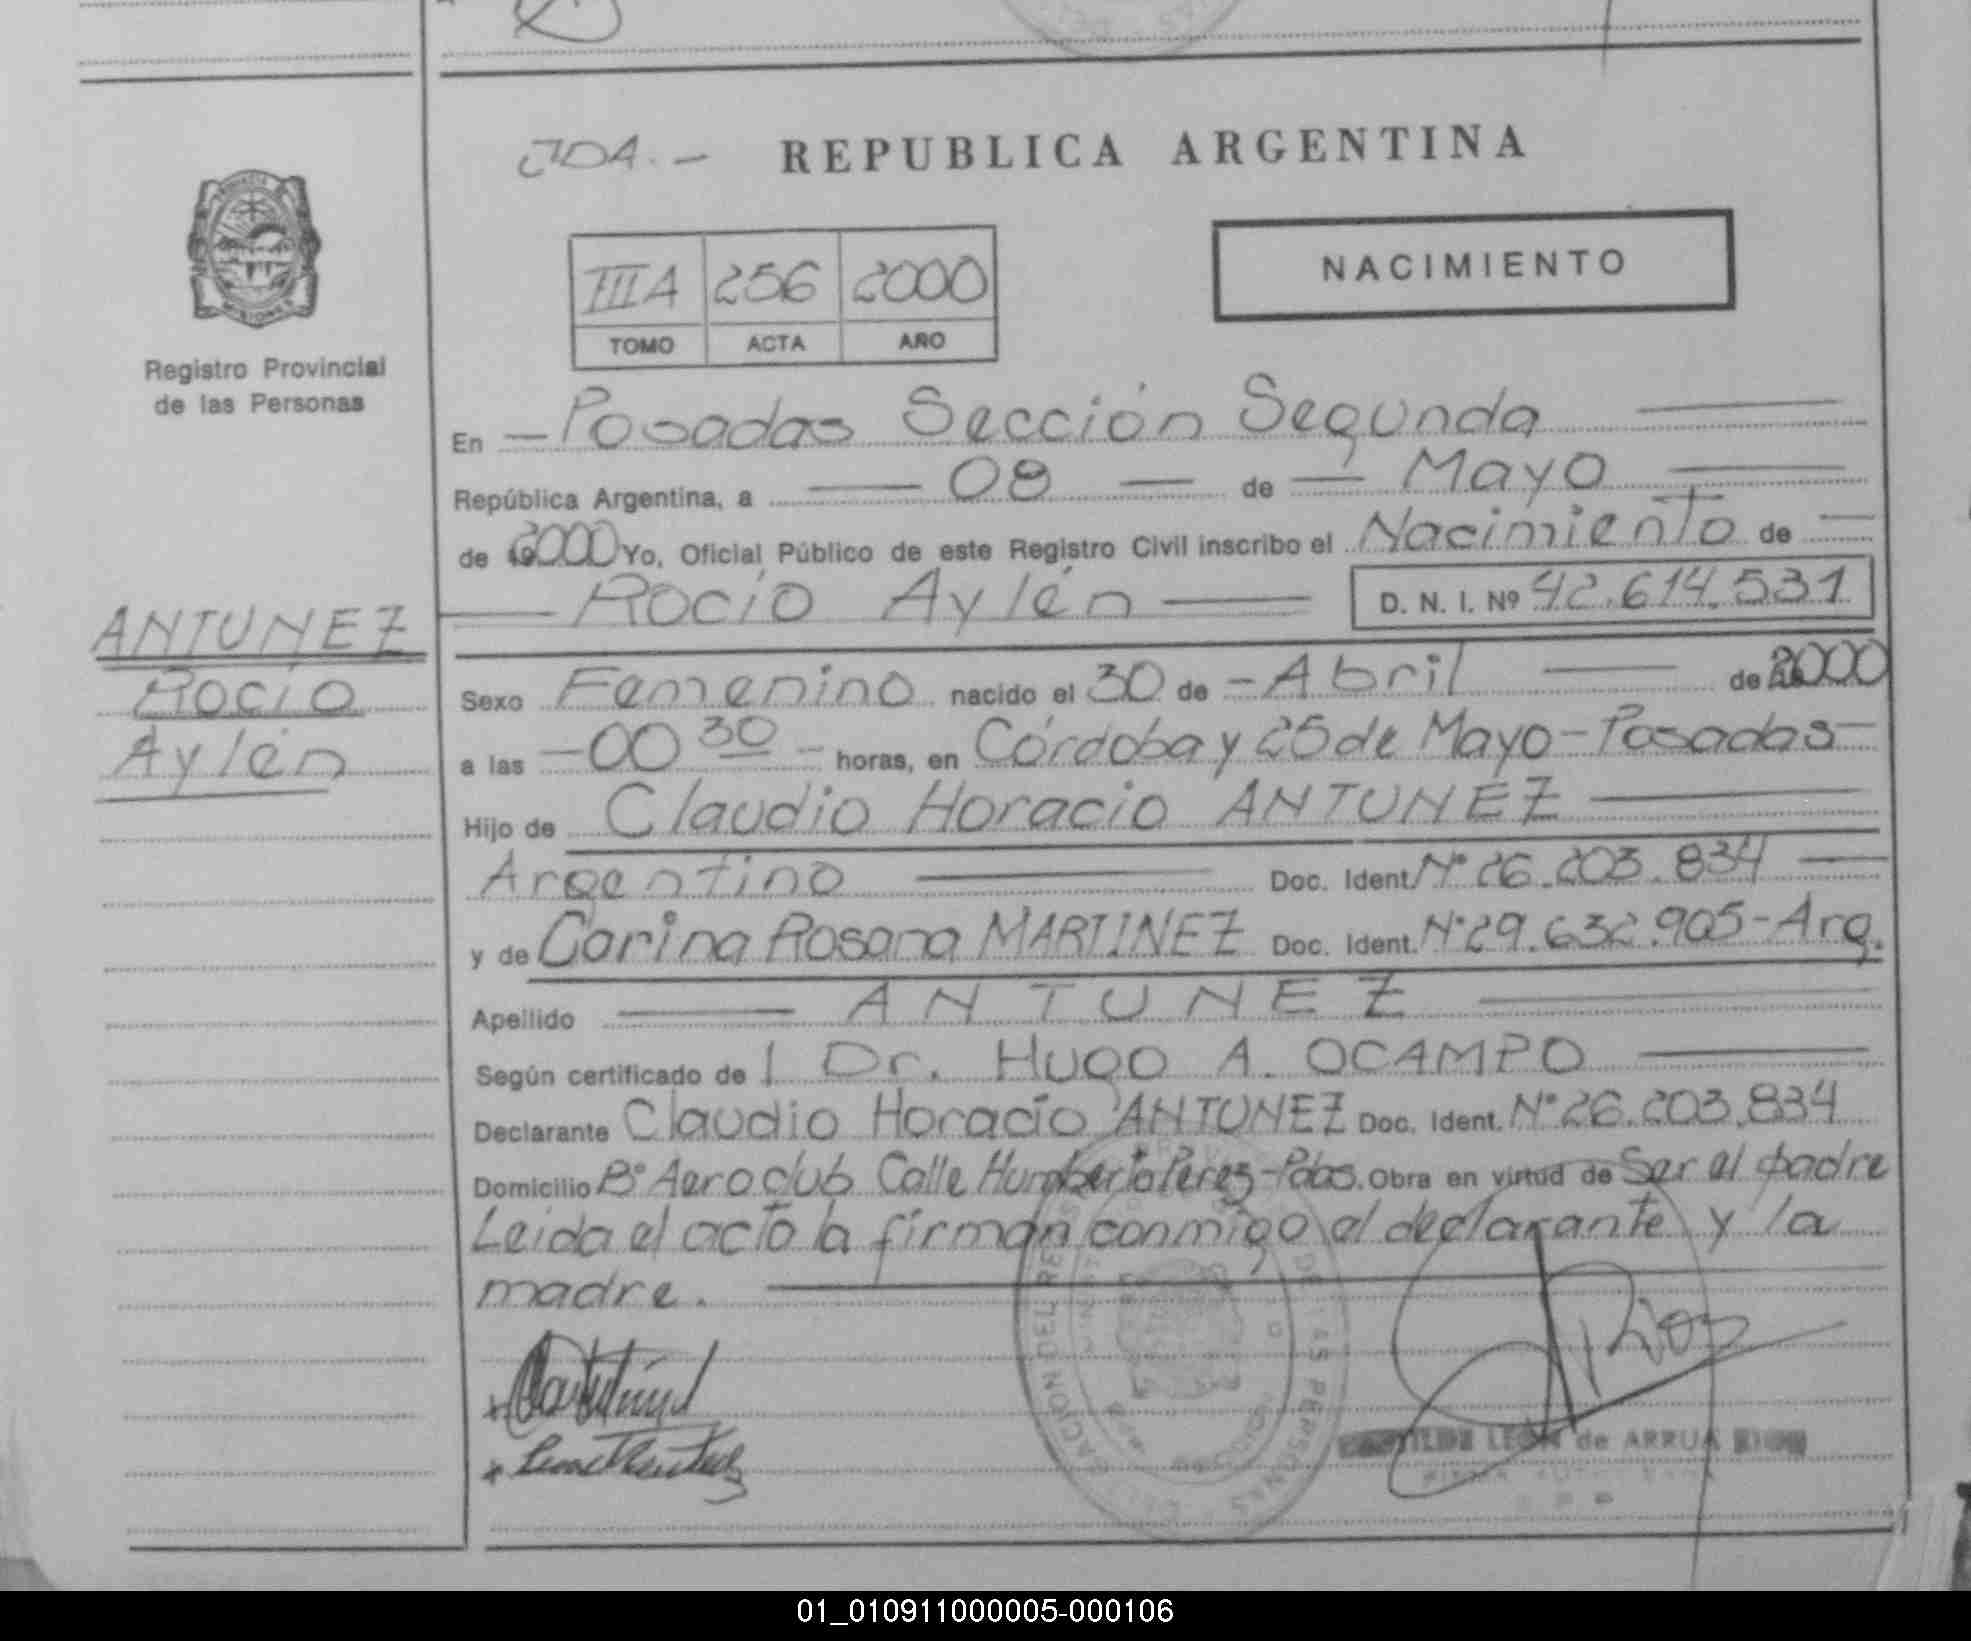 JDA.- REPUBLICA ARGENTINA
NACIMIENTO
IIIA 256 2000
TOMO ACTA AÑO
Registro Provincial
de las Personas
En — Posadas Sección Segunda —
República Argentina, a — 08 — de — Mayo —
de 2000 Yo, Oficial Público de este Registro Civil inscribo el Nacimiento de —
— Rocío Aylén — D. N. I. Nº 42.614.531
ANTUNEZ
Rocío
Aylén
Sexo Femenino nacido el 30 de - Abril — de 2000
a las - 00 30 - horas, en Córdoba y 25 de Mayo - Posadas -
Hijo de Claudio Horacio ANTUNEZ —
Argentino — Doc. Ident. Nº 26.203.834 —
y de Carina Rosana MARTINEZ Doc. Ident. Nº 29.632.905 - Arg.
Apellido — ANTUNEZ —
Según certificado de l Dr. Hugo A. OCAMPO —
Declarante Claudio Horacio ANTUNEZ Doc. Ident. Nº 26.203.834
Domicilio Bº Aeroclub Calle Humberto Perez - Pdas. Obra en virtud de Ser el padre
Leida el acto la firman conmigo el declarante y la
madre. —
LEON de ARRUA
01_010911000005-000106